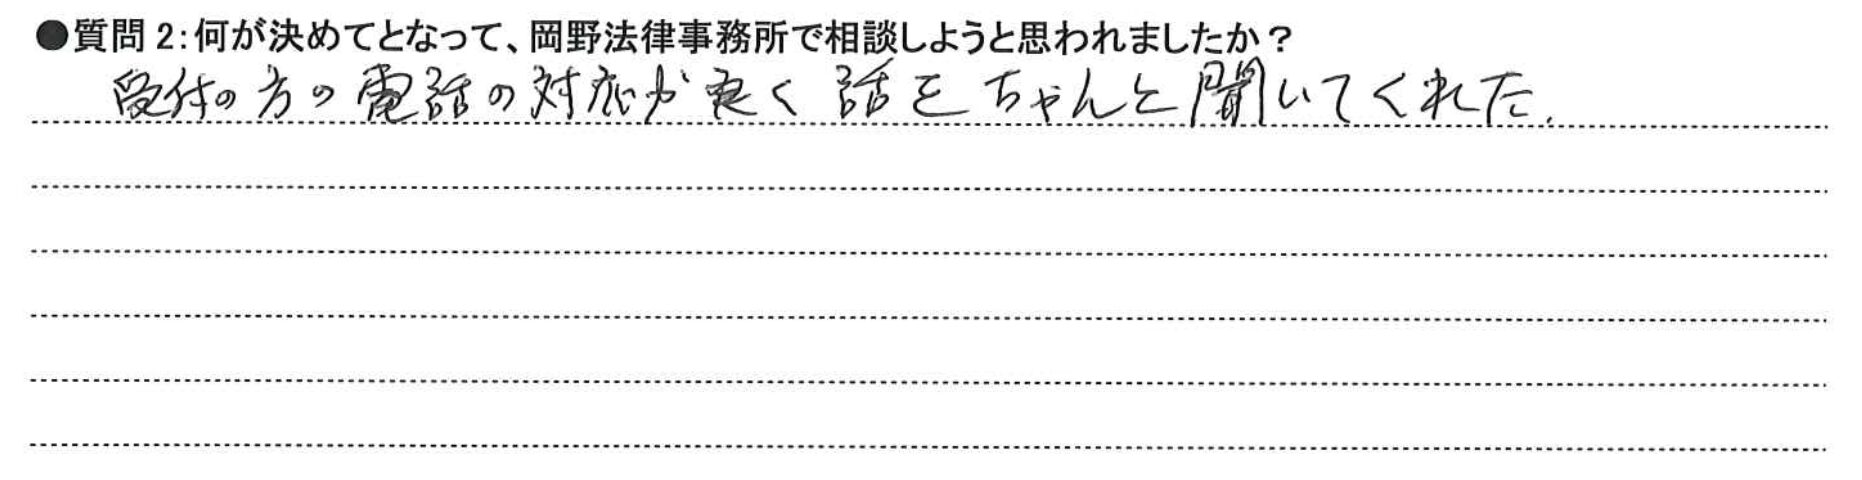 ●質問2:何が決めてとなって、岡野法律事務所で相談しようと思われましたか?
受付の方の電話の対応が良く話をちゃんと聞いてくれた.